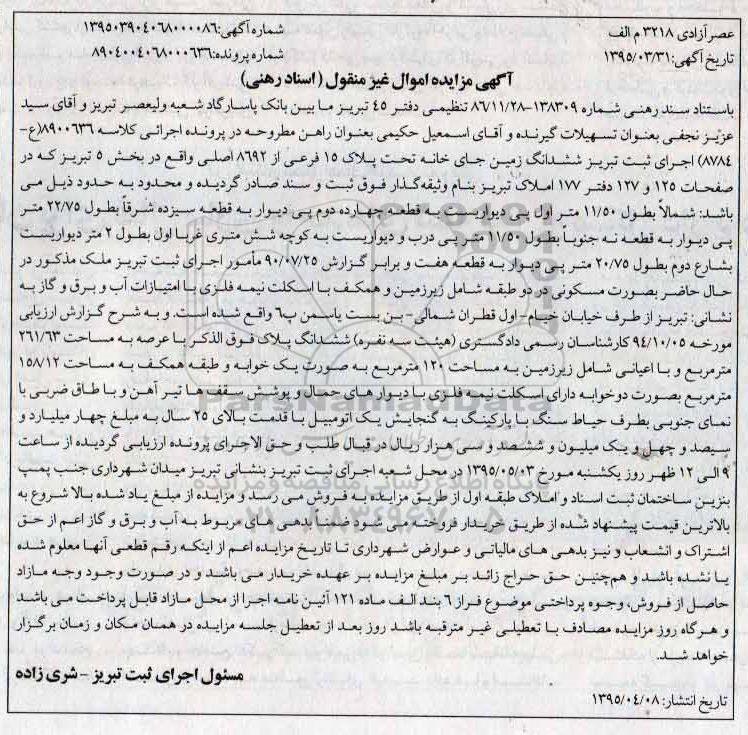 عصرآزادی ۳۲۱۸ م الف
شماره آگهی: ۱۳۹۵۰۳۹۰۴۰۶۸۰۰۰۰۸۶
تاریخ آگهی: ۱۳۹۵/۰۳/۳۱
شماره پرونده: ۸۹۰۴۰۰۴۰۶۸۰۰۰۶۳۶
آگهی مزایده اموال غیر منقول (اسناد رهنی)
باستناد سند رهنی شماره ۱۳۸۳۰۹-۸۶/۱۱/۲۸ تنظیمی دفتر ۴۵ تبریز ما بین بانک پاسارگاد شعبه ولیعصر تبریز و آقای سید
عزیز نجفی بعنوان تسهیلات گیرنده و آقای اسمعیل حکیمی بعنوان راهن مطروحه در پرونده اجرائی کلاسه ۸۹۰۰۶۳۶(ع-
۸۷۸۴) اجرای ثبت تبریز ششدانگ زمین جای خانه تحت پلاک ۱۵ فرعی از ۸۶۹۲ اصلی واقع در بخش ۵ تبریز که در
صفحات ۱۲۵ و ۱۲۷ دفتر ۱۷۷ املاک تبریز بنام وثیقه‌گذار فوق ثبت و سند صادر گردیده و محدود به حدود ذیل می
باشد: شمالاً بطول ۱۱/۵۰ متر اول پی دیواریست به قطعه چهارده دوم پی دیوار به قطعه سیزده شرقاً بطول ۲۲/۷۵ متر
پی دیوار به قطعه نه جنوباً بطول ۱۱/۵۰ متر پی درب و دیواریست به کوچه شش متری غربا اول بطول ۲ متر دیواریست
بشارع دوم بطول ۲۰/۷۵ متر پی دیوار به قطعه هفت و برابر گزارش ۹۰/۰۷/۲۵ مأمور اجرای ثبت تبریز ملک مذکور در
حال حاضر بصورت مسکونی در دو طبقه شامل زیرزمین و همکف با اسکلت نیمه فلزی با امتیازات آب و برق و گاز به
نشانی: تبریز از طرف خیابان خیام- اول قطران شمالی- بن بست یاسمن پ۶ واقع شده است. و به شرح گزارش ارزیابی
مورخه ۹۴/۱۰/۰۵ کارشناسان رسمی دادگستری (هیئت سه نفره) ششدانگ پلاک فوق الذکر با عرصه به مساحت ۲۶۱/۶۳
مترمربع و با اعیانی شامل زیرزمین به مساحت ۱۲۰ مترمربع به صورت یک خوابه و طبقه همکف به مساحت ۱۵۸/۱۲
مترمربع بصورت دوخوابه دارای اسکلت نیمه فلزی با دیوارهای حمال و پوشش سقف ها تیر آهن و با طاق ضربی با
نمای جنوبی بطرف حیاط سنگ با پارکینگ به گنجایش یک اتومبیل با قدمت بالای ۲۵ سال به مبلغ چهار میلیارد و
سیصد و چهل و یک میلیون و ششصد و سی هزار ریال در قبال طلب و حق الاجرای پرونده ارزیابی گردیده از ساعت
۹ الی ۱۲ ظهر روز یکشنبه مورخ ۱۳۹۵/۰۵/۰۳ در محل شعبه اجرای ثبت تبریز بنشانی تبریز میدان شهرداری جنب پمپ
بنزین ساختمان ثبت اسناد و املاک طبقه اول از طریق مزایده به فروش می رسد و مزایده از مبلغ یاد شده بالا شروع به
بالاترین قیمت پیشنهاد شده از طریق خریدار فروخته می شود ضمنا بدهی های مربوط به آب و برق و گاز اعم از حق
اشتراک و انشعاب و نیز بدهی های مالیاتی و عوارض شهرداری تا تاریخ مزایده اعم از اینکه رقم قطعی آنها معلوم شده
یا نشده باشد و هم‌چنین حق حراج زائد بر مبلغ مزایده بر عهده خریدار می باشد و در صورت وجود وجه مازاد
حاصل از فروش، وجوه پرداختی موضوع فراز ۶ بند الف ماده ۱۲۱ آئین نامه اجرا از محل مازاد قابل پرداخت می باشد
و هرگاه روز مزایده مصادف با تعطیلی غیر مترقبه باشد روز بعد از تعطیل جلسه مزایده در همان مکان و زمان برگزار
خواهد شد.
مسئول اجرای ثبت تبریز - شری زاده
تاریخ انتشار: ۱۳۹۵/۰۴/۰۸